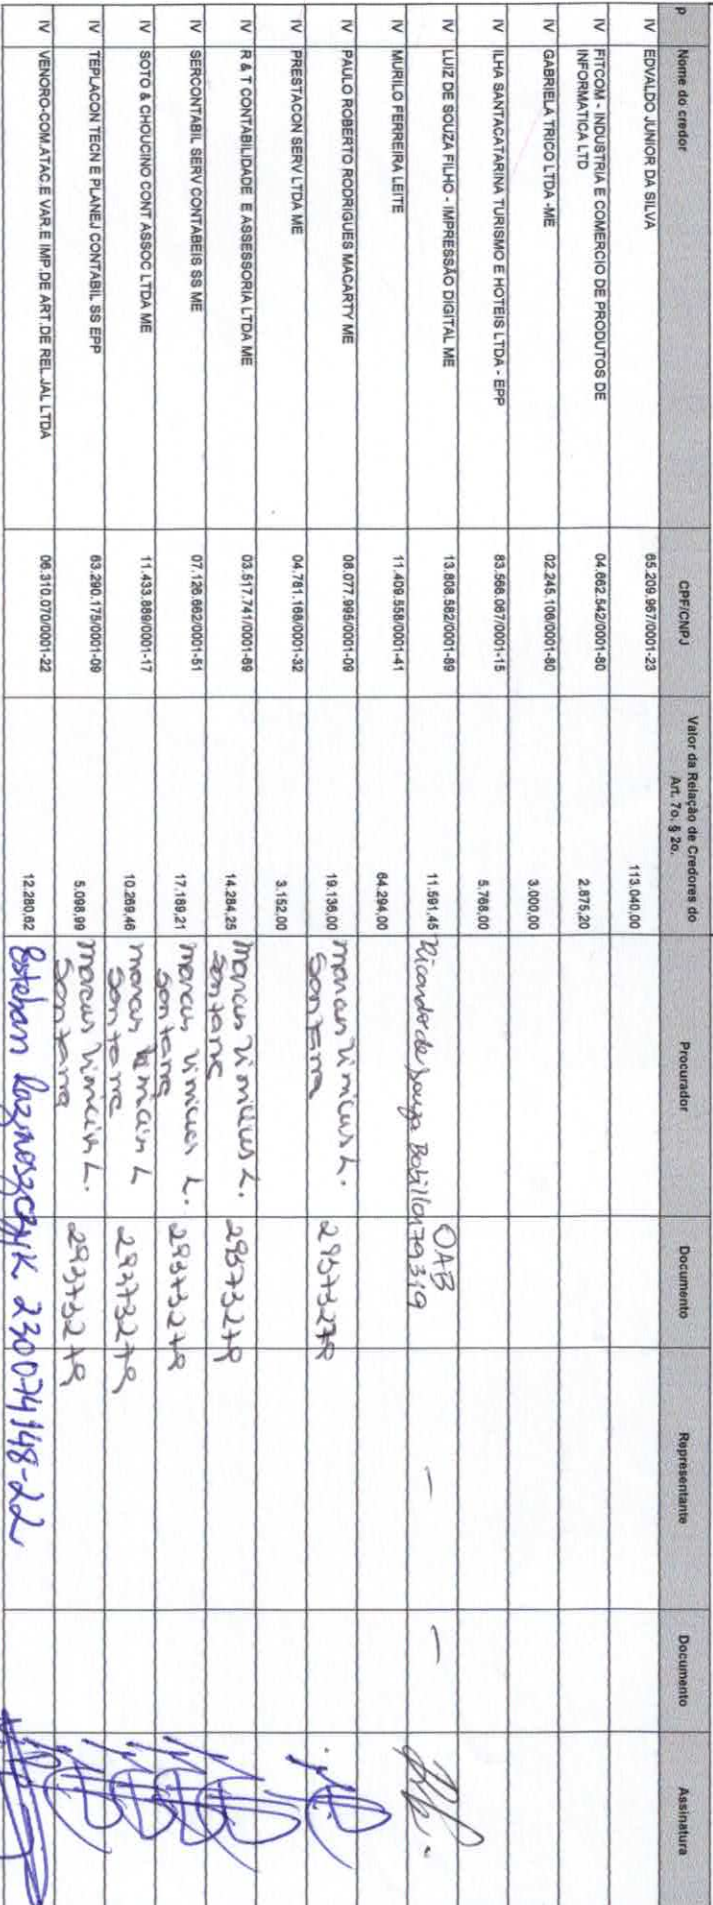 P Nome do credor CPF/CNPJ Valor da Relação de Credores do Procurador Documento Representante Documento Assinatura
Art. 7o. § 2o.
IV EDVALDO JUNIOR DA SILVA 65.209.967/0001-23 113.040,00
IV FITCOM - INDUSTRIA E COMERCIO DE PRODUTOS DE 04.662.542/0001-80 2.875,20
INFORMATICA LTD
IV GABRIELA TRICO LTDA -ME 02.245.106/0001-80 3.000,00
IV ILHA SANTACATARINA TURISMO E HOTEIS LTDA - EPP 83.568.067/0001-15 5.768,00
IV LUIZ DE SOUZA FILHO - IMPRESSÃO DIGITAL ME 13.808.582/0001-89 11.591,45 Ricardo de Souza OAB 179319 — —
IV MURILO FERREIRA LEITE 11.409.558/0001-41 64.294,00
IV PAULO ROBERTO RODRIGUES MACARTY ME 08.077.995/0001-09 19.136,00 Marcus Vinicius L. 29373279
Santana
IV PRESTACON SERV LTDA ME 04.781.168/0001-32 3.152,00
IV R & T CONTABILIDADE E ASSESSORIA LTDA ME 03.517.741/0001-69 14.284,25 Marcus Vinicius L. 29373279
Santana
IV SERCONTABIL SERV CONTABEIS SS ME 07.126.662/0001-51 17.189,21 Marcus Vinicius L. 29373279
Santana
IV SOTO & CHOUCINO CONT ASSOC LTDA ME 11.433.889/0001-17 10.269,46 Marcus Vinicius L 29373279
Santana
IV TEPLACON TECN E PLANEJ CONTABIL SS EPP 63.290.175/0001-09 5.098,99 Marcus Vinicius L. 29373279
Santana
IV VENORO-COM.ATAC.E VAR.E IMP.DE ART.DE REL.JAL LTDA 06.310.070/0001-22 12.280,62 Esteban 230074148-22